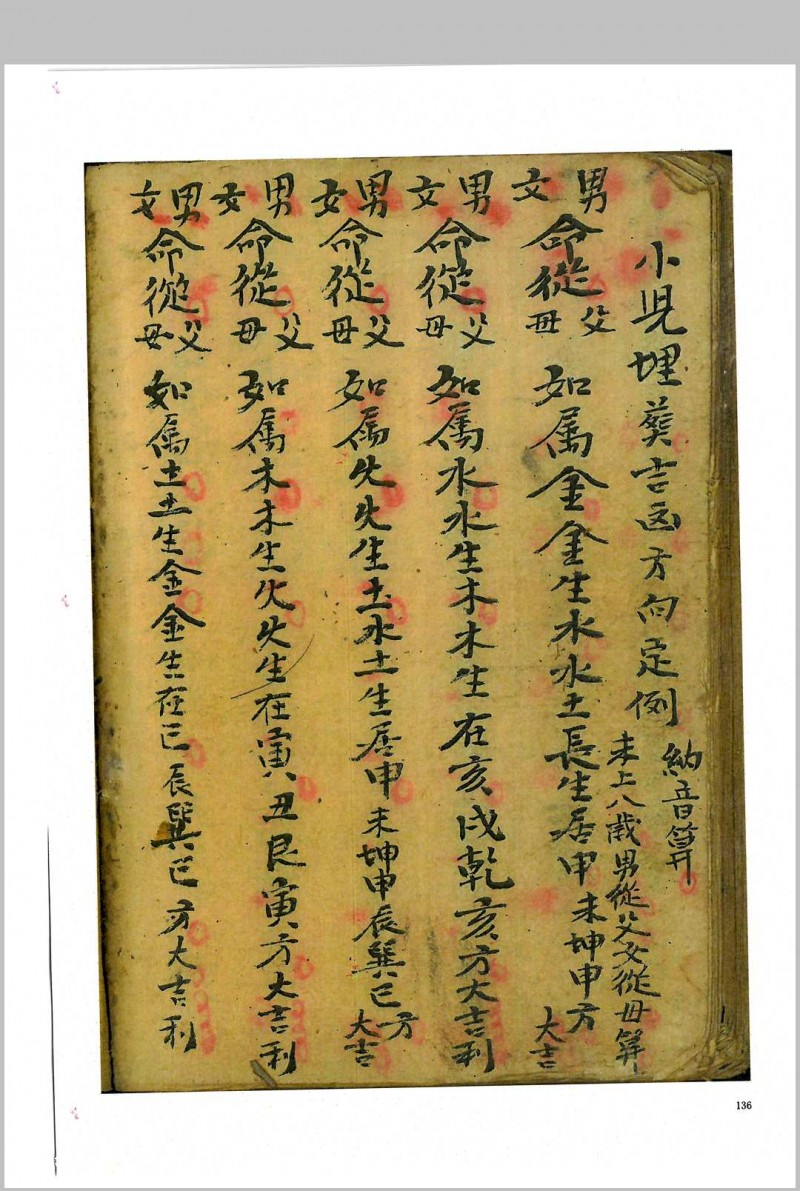 小児埋葬吉凶方向定例
納音算
未上八歲男從父女從母算
男女命從父母如属金金生水水土長生居申未坤申方大吉
男女命從父母如属水水生木木生在亥戌乾亥方大吉利
男女命從父母如属火火生土水土生居申未坤申辰巽巳方大吉
男女命從父母如属木木生火火生在寅丑艮寅方大吉利
男女命從父母如属土土生金金生在巳辰巽巳方大吉利
136